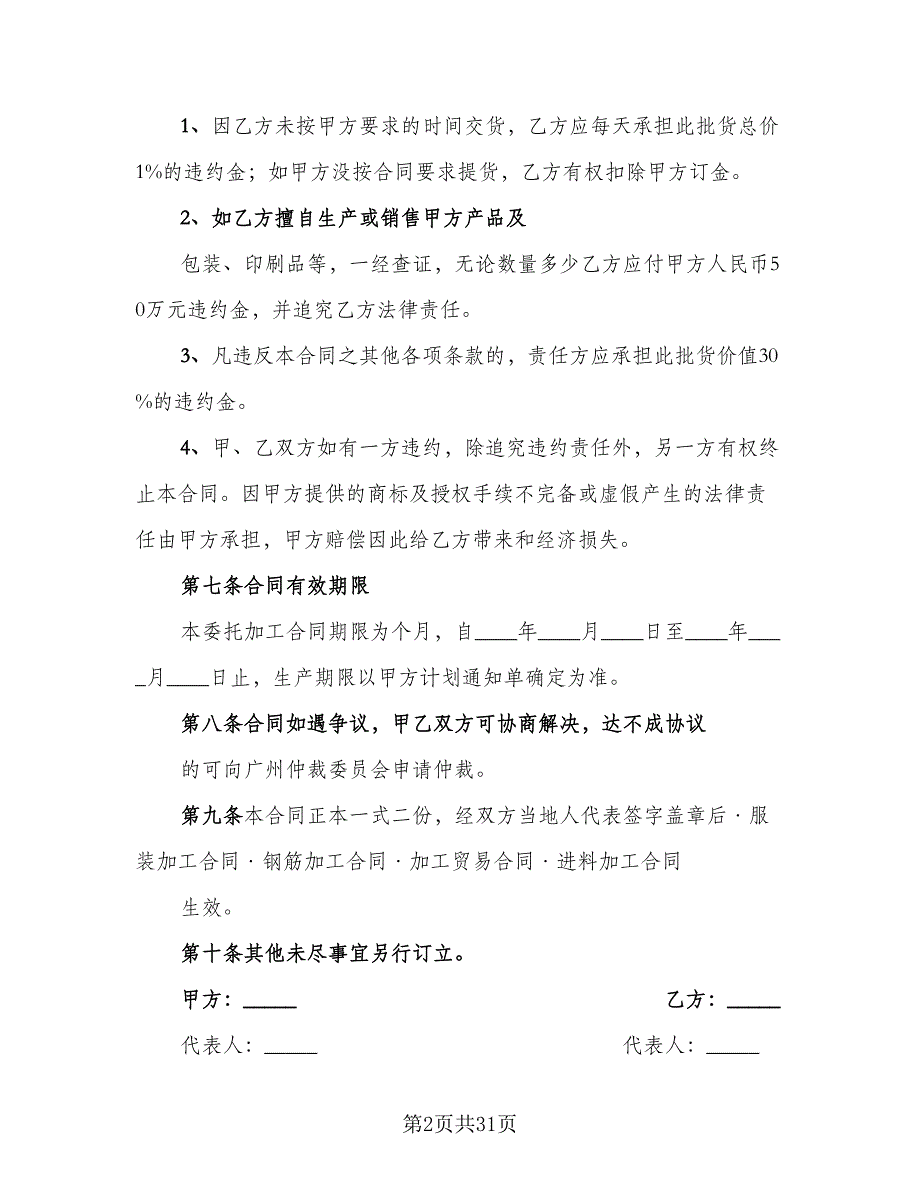 1、因乙方未按甲方要求的时间交货，乙方应每天承担此批货总价
1%的违约金；如甲方没按合同要求提货，乙方有权扣除甲方订金。
2、如乙方擅自生产或销售甲方产品及
包装、印刷品等，一经查证，无论数量多少乙方应付甲方人民币5
0万元违约金，并追究乙方法律责任。
3、凡违反本合同之其他各项条款的，责任方应承担此批货价值30
%的违约金。
4、甲、乙双方如有一方违约，除追究违约责任外，另一方有权终
止本合同。因甲方提供的商标及授权手续不完备或虚假产生的法律责
任由甲方承担，甲方赔偿因此给乙方带来和经济损失。
第七条合同有效期限
本委托加工合同期限为个月，自____年____月____日至____年___
_月____日止，生产期限以甲方计划通知单确定为准。
第八条合同如遇争议，甲乙双方可协商解决，达不成协议
的可向广州仲裁委员会申请仲裁。
第九条本合同正本一式二份，经双方当地人代表签字盖章后·服
装加工合同·钢筋加工合同·加工贸易合同·进料加工合同
生效。
第十条其他未尽事宜另行订立。
甲方：_____ 乙方：_____
代表人：_____ 代表人：_____
第2页共31页